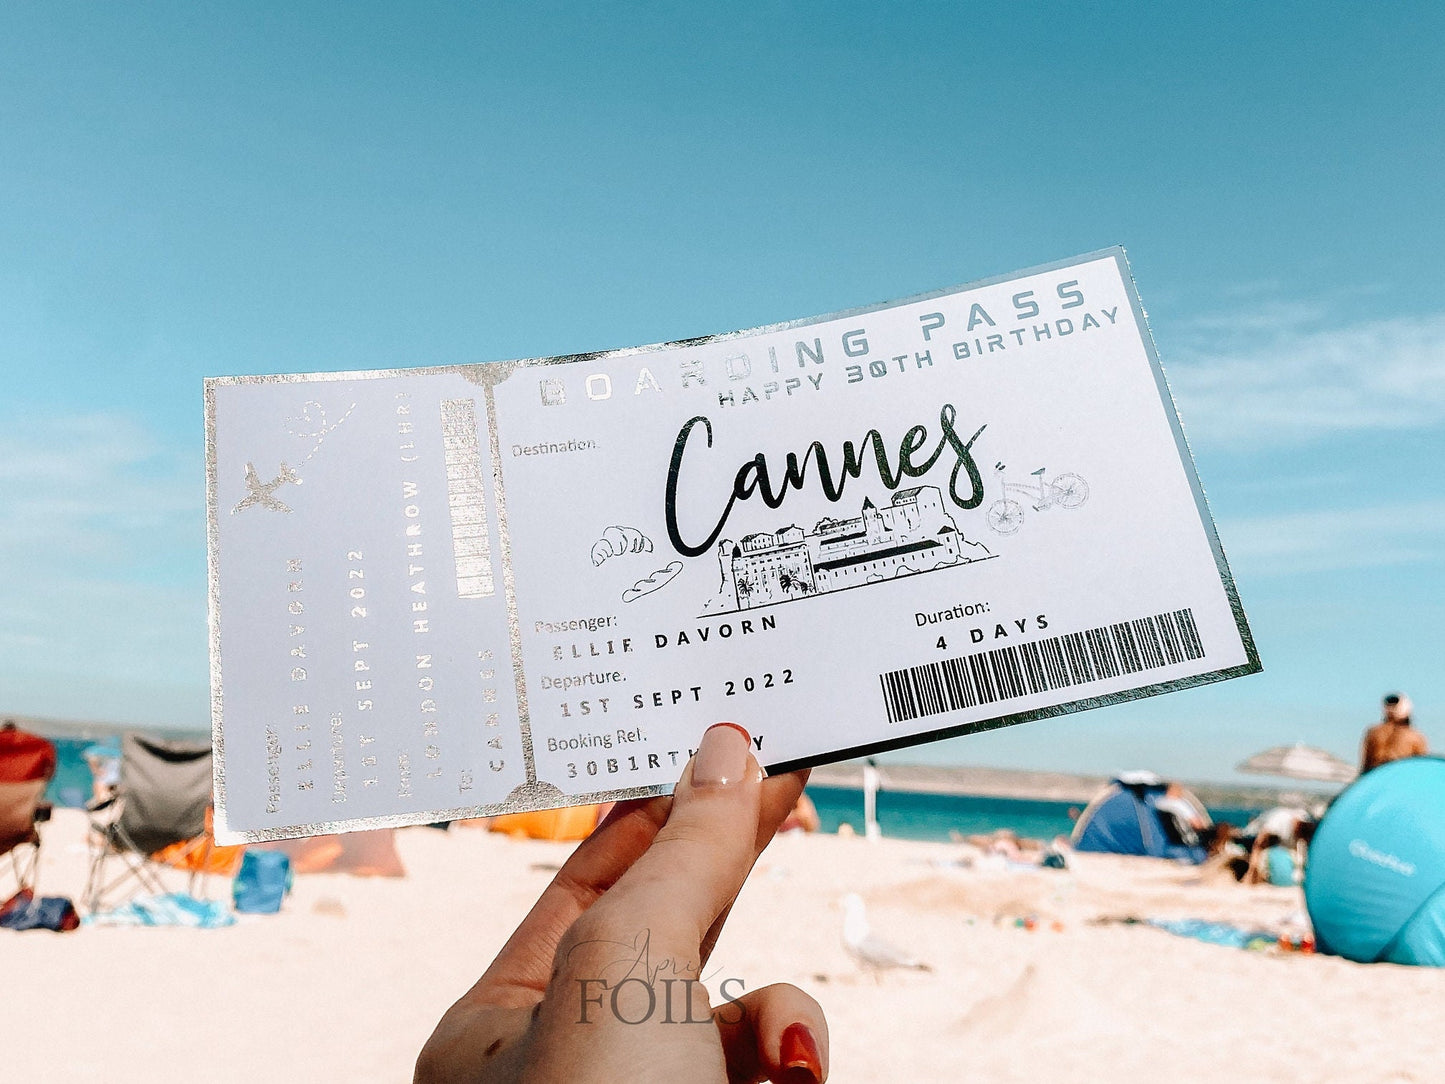 BOARDING PASS
HAPPY 30TH BIRTHDAY
Destination:
Cannes
Passenger:
ELLIE DAVORN
Departure:
1ST SEPT 2022
Booking Ref:
30B1RTHDAY
Duration:
4 DAYS
Passenger:
ELLIE DAVORN
Departure:
1ST SEPT 2022
From:
LONDON HEATHROW (LHR)
To:
CANNES
April
FOILS